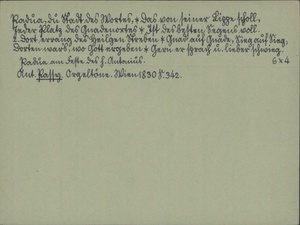 Padua, du Stadt des Wortes, * Das von seiner Lippe scholl,
Jeder Platz des Gnadenortes * Ist des besten Segens voll.
2. Dort errang des Heilgen Streben * Gnad auf Gnade, Sieg auf Sieg,
Dorten wars, wo Gott ergeben * Gern er sprach u. lieber schwieg.
Padua am Feste des h. Antonius. 6 x 4
Ant. Passy, Orgeltöne. Wien 1830 S. 342.